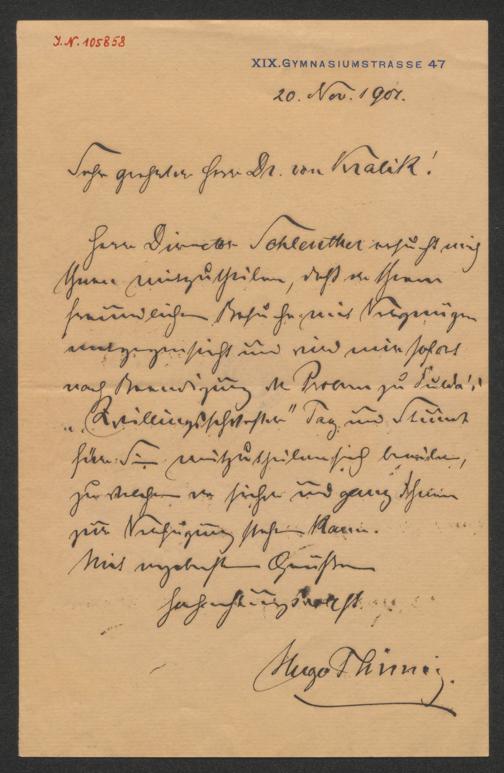 J.N. 105858
XIX. GYMNASIUMSTRASSE 47
20. Nov. 1901.
Sehr geehrter Herr Dr. von Kralik!
Herr Director Schlenther ersucht mich
Ihnen mitzutheilen, daß er Ihrem
freundlichen Besuche mit Vergnügen
entgegensieht und wird mir sofort
nach Beendigung der Proben zu Fulda's
„Zwillingsschwester" Tag und Stunde
für Sie mitzutheilen sich beeilen,
zu welcher er sicher und ganz Ihnen
zur Verfügung stehen kann.
Mit ergebensten Grüßen
hochachtungsvollst
Hugo Thimig.